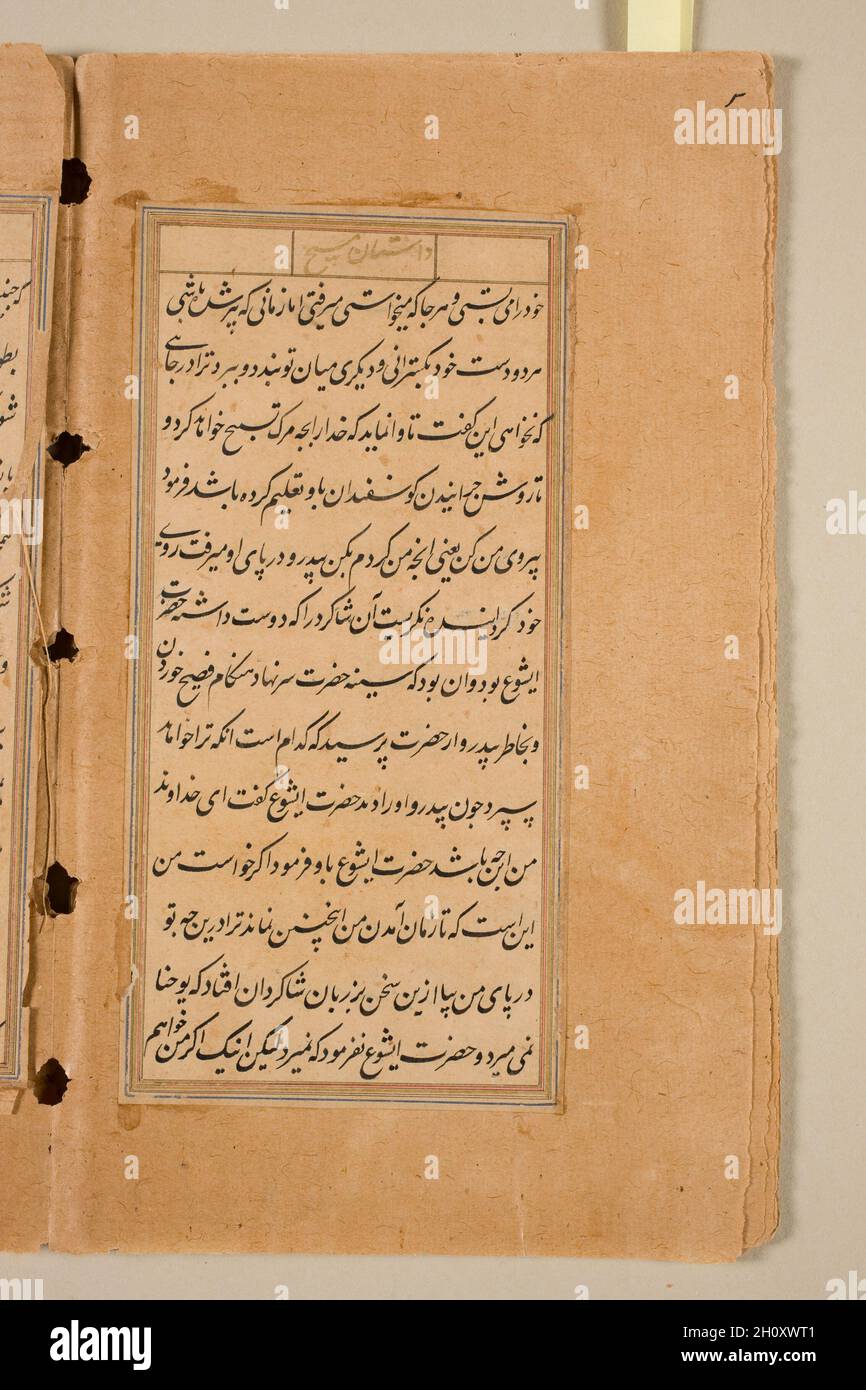 داستان مسیح
خود را می بستی و هر جا که میخواستی میرفتی اما زمانی که پیر شده باشی
هر دو دست خود بگسترانی و دیگری میان تو بندد و برد ترا در جای
که نخواهی این گفت تا وا نماید که خدا را بچه مرک تسبیح خواهد کرد و
تا روش چرانیدن کوسفندان باو تعلیم کرده باشد فرمود
پیروی من کن یعنی انچه من کردم بکن پیدرو در پای او میرفت روی
خود کردانیده نکریست آن شاکرد را که دوست داشته حضرت
ایشوع بود و ان بود که بسینه حضرت سر نهاد هنکام فصیح خوردن
و بخاطر پیدرو از حضرت پرسید که کدام است انکه ترا خواهد
سپرد چون پیدرو او را دید حضرت ایشوع گفت ای خداوند
من این چه باشد حضرت ایشوع باو فرمود اکر خواست من
این است که تا زمان آمدن من اینچنین نماند ترا درین چه تو
در پای من بیا ازین سخن بر زبان شاکردان افتاد که یوحنا
نمی میرد و حضرت ایشوع نفرمود که نمیرد لیکن اینک اکر من خواهم
alamy
Image ID: 2H0XWT1
www.alamy.com